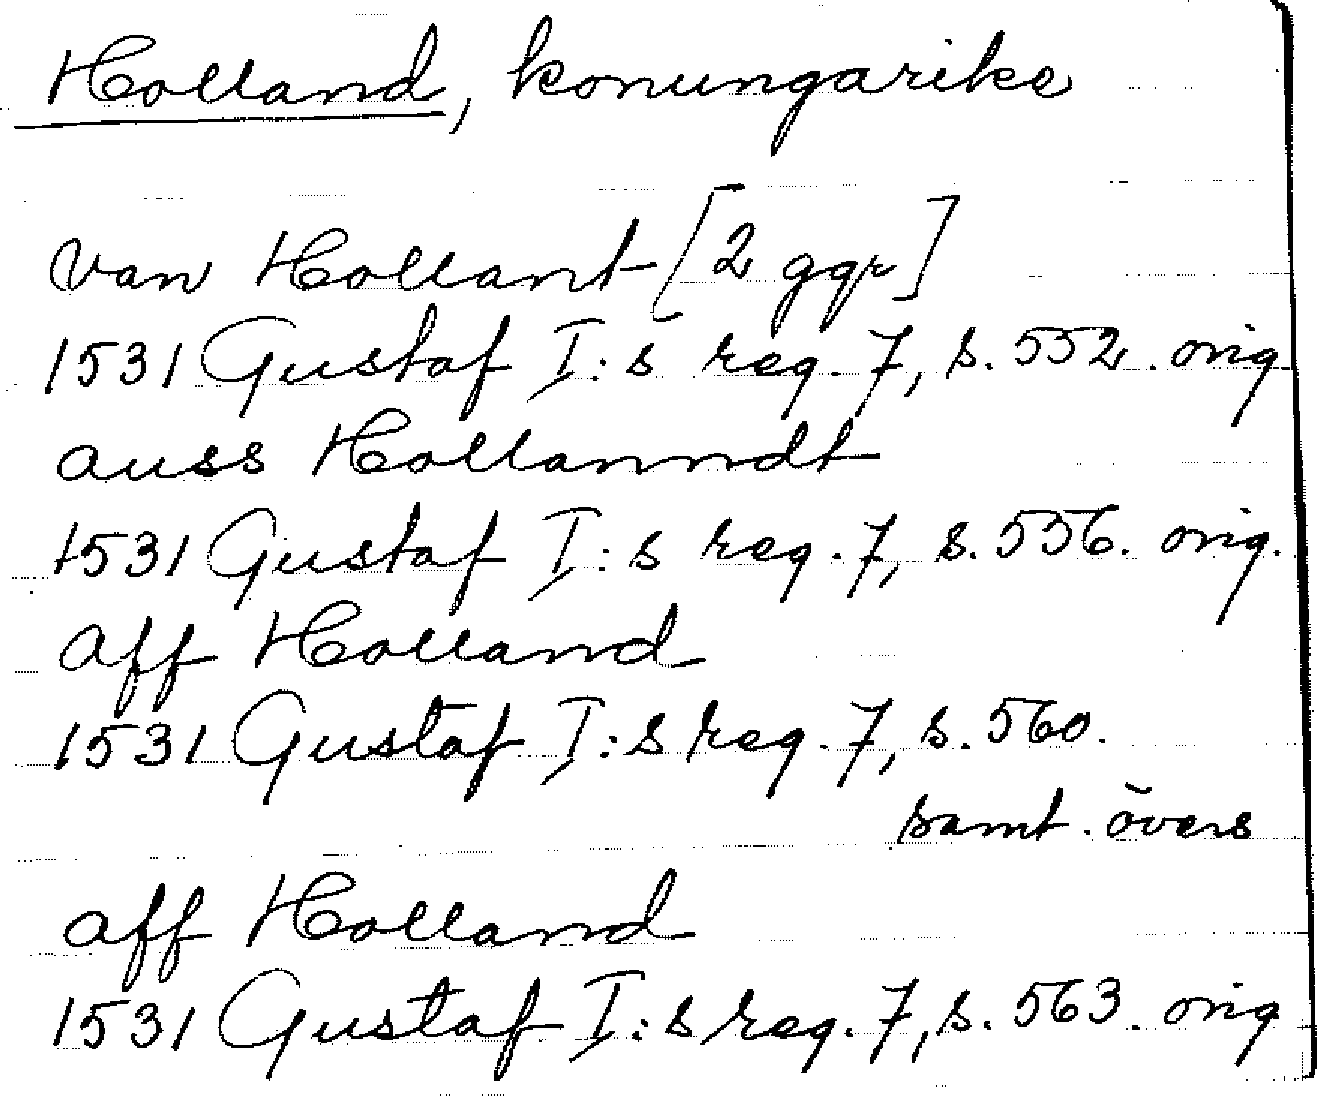 Holland, konungarike
van Hollant [2 ggr]
1531 Gustaf I:s reg. 7, s. 552. orig
auss Hollanndt
1531 Gustaf I:s reg. 7, s. 556. orig.
aff Holland
1531 Gustaf I:s reg. 7, s. 560.
samt. övers
aff Holland
1531 Gustaf I:s reg. 7, s. 563. orig